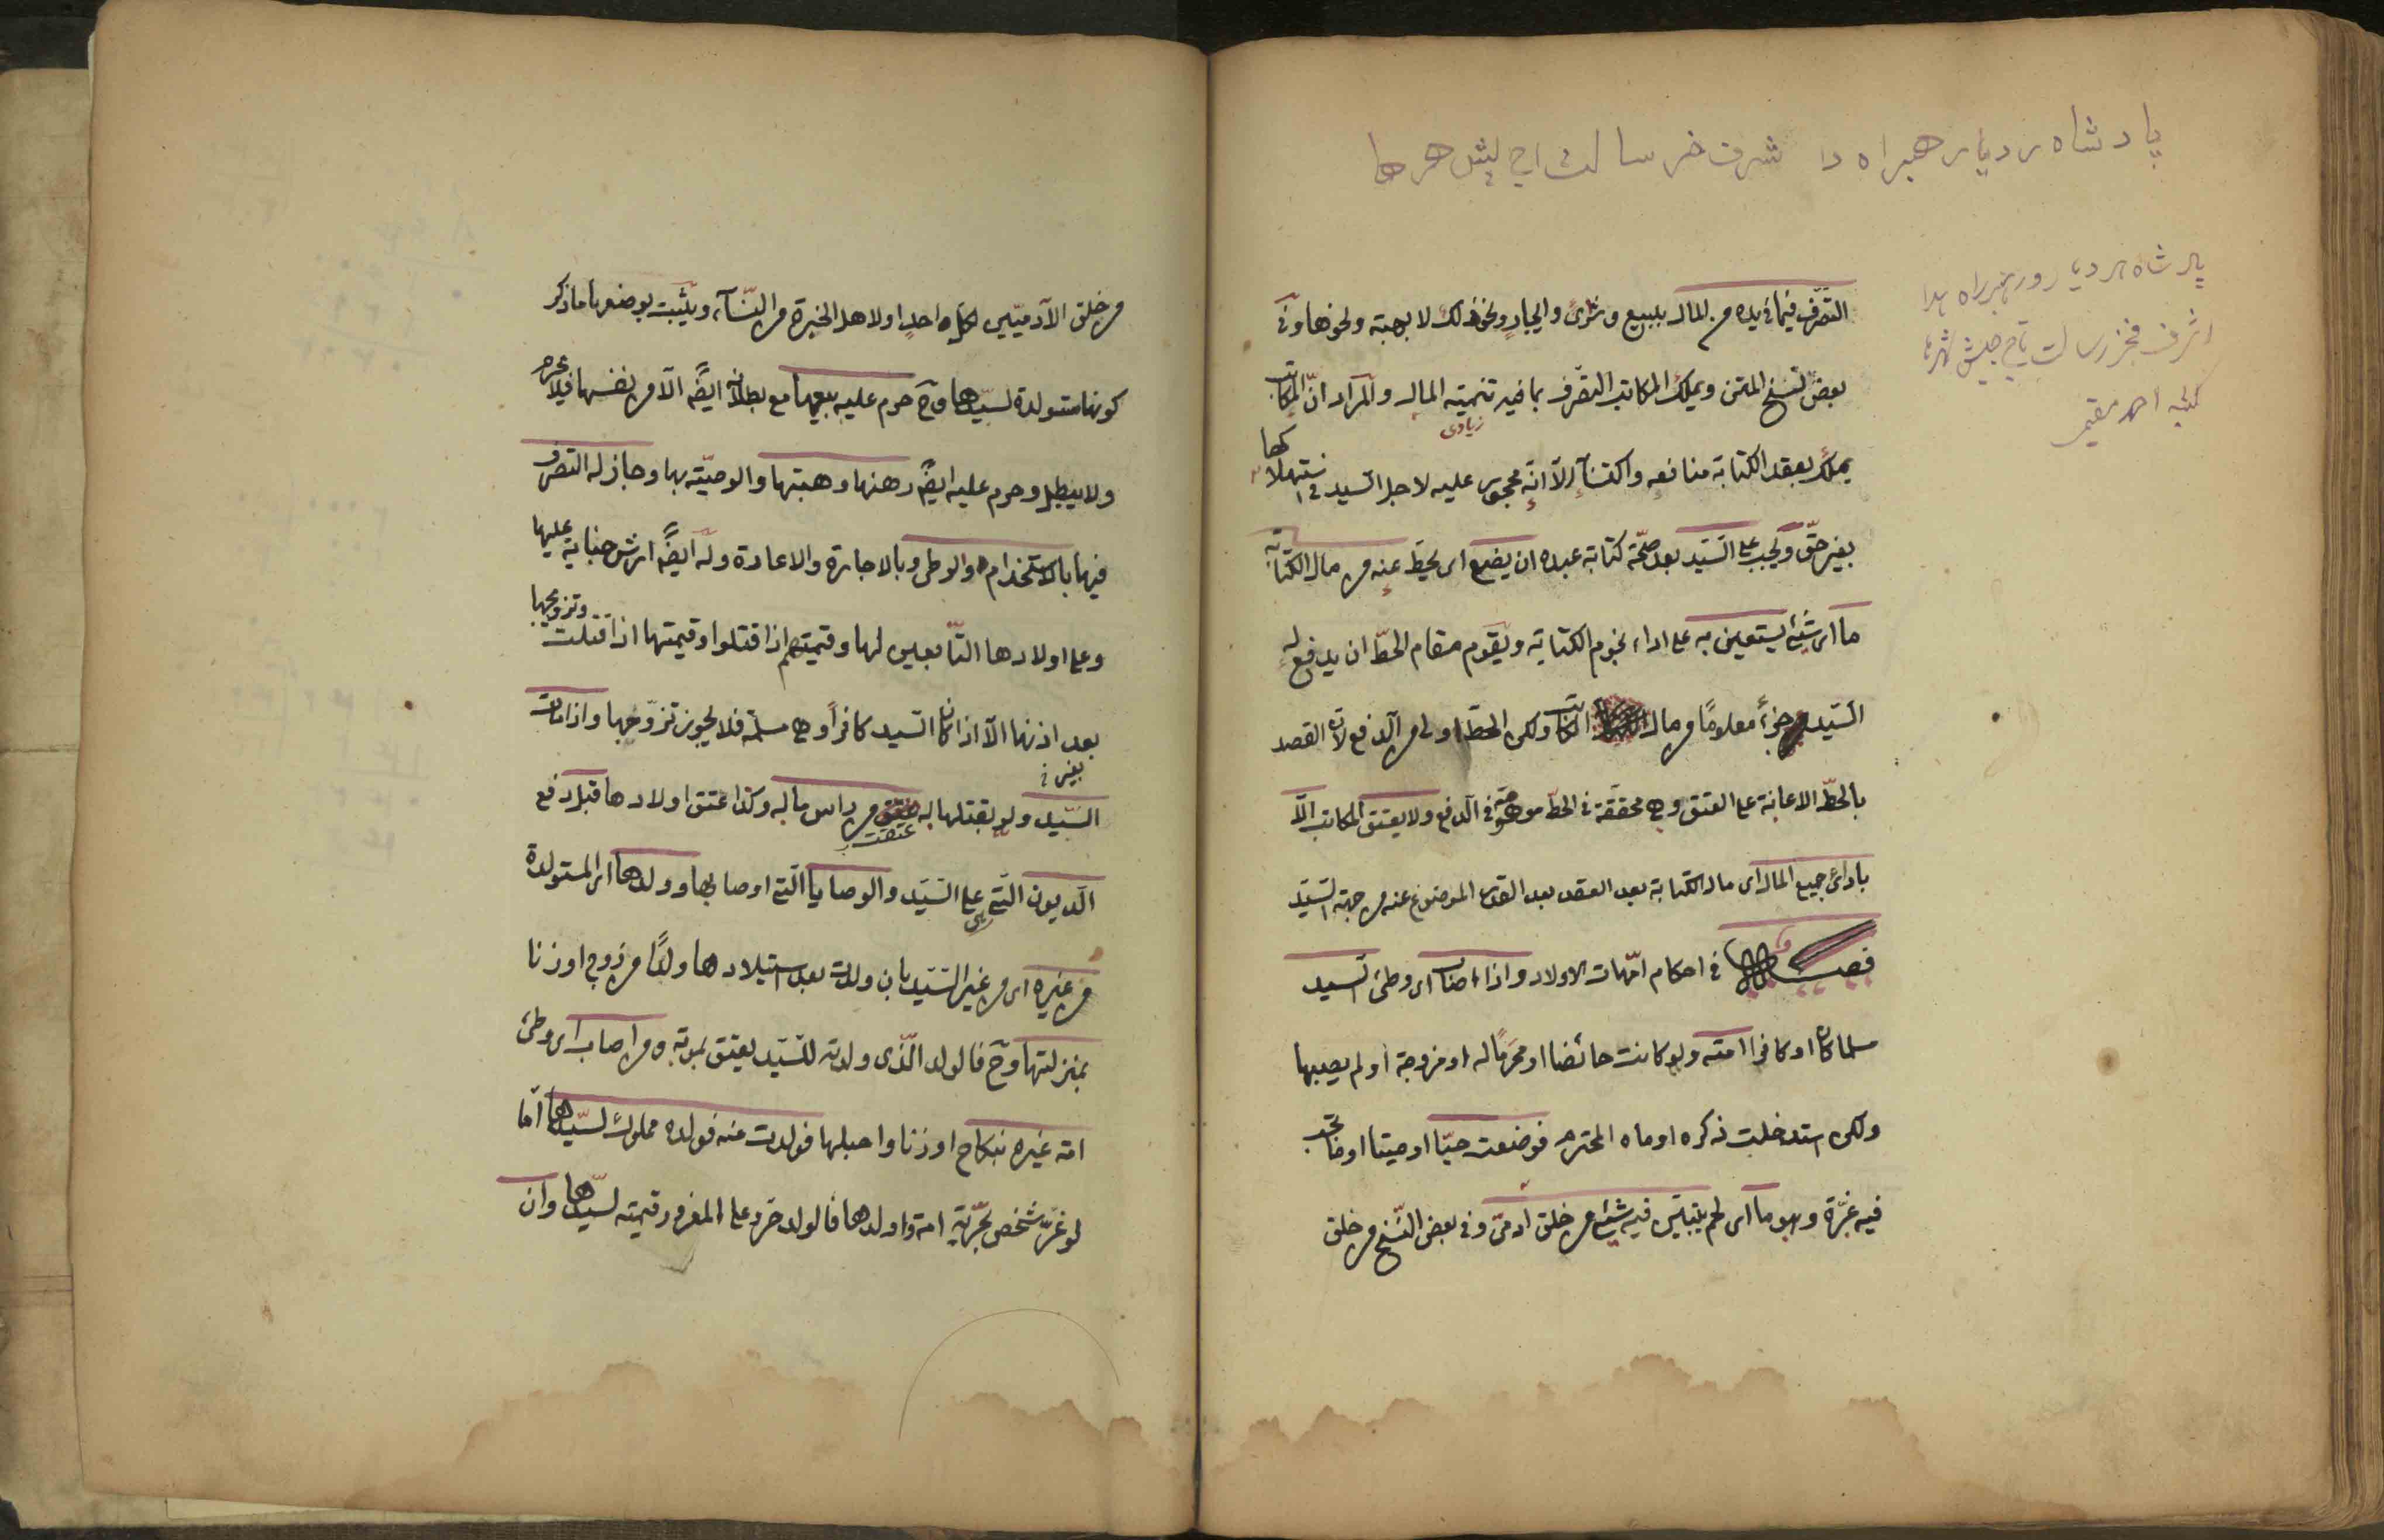 پادشاه ر دیار هبراه دا شرف
کتبه احمد مقیم
التصّرف فيما فى يده من المال ببيع وشرىً وايجارٍ ونحو ذلك لا بهبته ونحوها وفى
بعض نسخ المتن ويملك المكاتب التصّرف بما فيه تنميته المال والمراد انّ المكاتب
زيادى
يملك بعقد الكتابة منافعه واكتسآبه الّا انّه محجور عليه لاجل السّيد فى استهلاكها
بغير حقّ ويجب على السّيد بعد صحّة كتابة عبده ان يضع اى يحطّ عنه من مال الكتابة
ما اى شئ يستعين به على اداء نجوم الكتابة ويقوم مقام الحطّ ان يدفع له
السّيد جزءً معلومًا من مال الكتابة ولكن الحطّ اولى من الدفع لان القصد
بالحطّ الاعانة على العتق وهى محققة فى الحطّ موهومة فى الدفع ولا يعتق المكاتب الّا
باداى جميع المال اى مال الكتابة بعد العقد بعد القدر الموضوع عنه من جهة السّيّد
فصل فى احكام امّهات الاولاد واذا اصاب اى وطئ السّيد
مسلما كان او كافرا امته ولو كانت حائضا او محرمًا له او مزوجة او لم يصيبها
ولكن استدخلت ذكره او ماه المحترم فوضعت حيّا او ميتا او ما تجب
فيه غرّة وهو ما اى لحم يتبيّن فيه شئ من خلق ادمىّ وفى بعض النّسخ من خلق
من خلق الآدميّين لكل واحدٍ او لاهل الخبرة من النّسآء ويثبت بوضعها ما ذكر
كونها مستولدة لسيّدها وح حرم عليه بيعها مع بطلانه ايضًا الّا من نفسها فلا يحرم
ولا يبطل وحرم عليه ايضًا رهنها وهبتها والوصيّة بها وجاز له التصّرف
فيها بالاستخدام والوطى وبالاجارة والاعارة وله ايضًا ارش جناية عليها
وعلى اولادها التّابعين لها وقيمتهم اذا قتلوا وقيمتها اذا قتلت وتزويجها
بغير اذنها الّا اذا كان السّيد كافراً وهى مسلمة فلا يجوز تزوّجها واذا مات
السّيّد ولو بقتلها له عتقت من راس ماله وكذا عتق اولادها قبل دفع
الّديون الّتى على السّيّد والوصايا الّتى اوصا بها وولدها اى المستولدة
من غيره اى من غير السّيّد بان ولدت بعد استيلادها ولدًا من زوج او زنا
بمنزلتها وح فالولد الّذى ولدته للسّيد يعتق بموته ومن اصاب اى وطئ
امة غيره بنكاح او زنا واحبلها فولدت منه فولده مملوك لسيّدها امّا
لو غرّ شخص بحّريّة امة واولدها فالولد حرّ وعلى المغرور قيمته لسيّدها وان